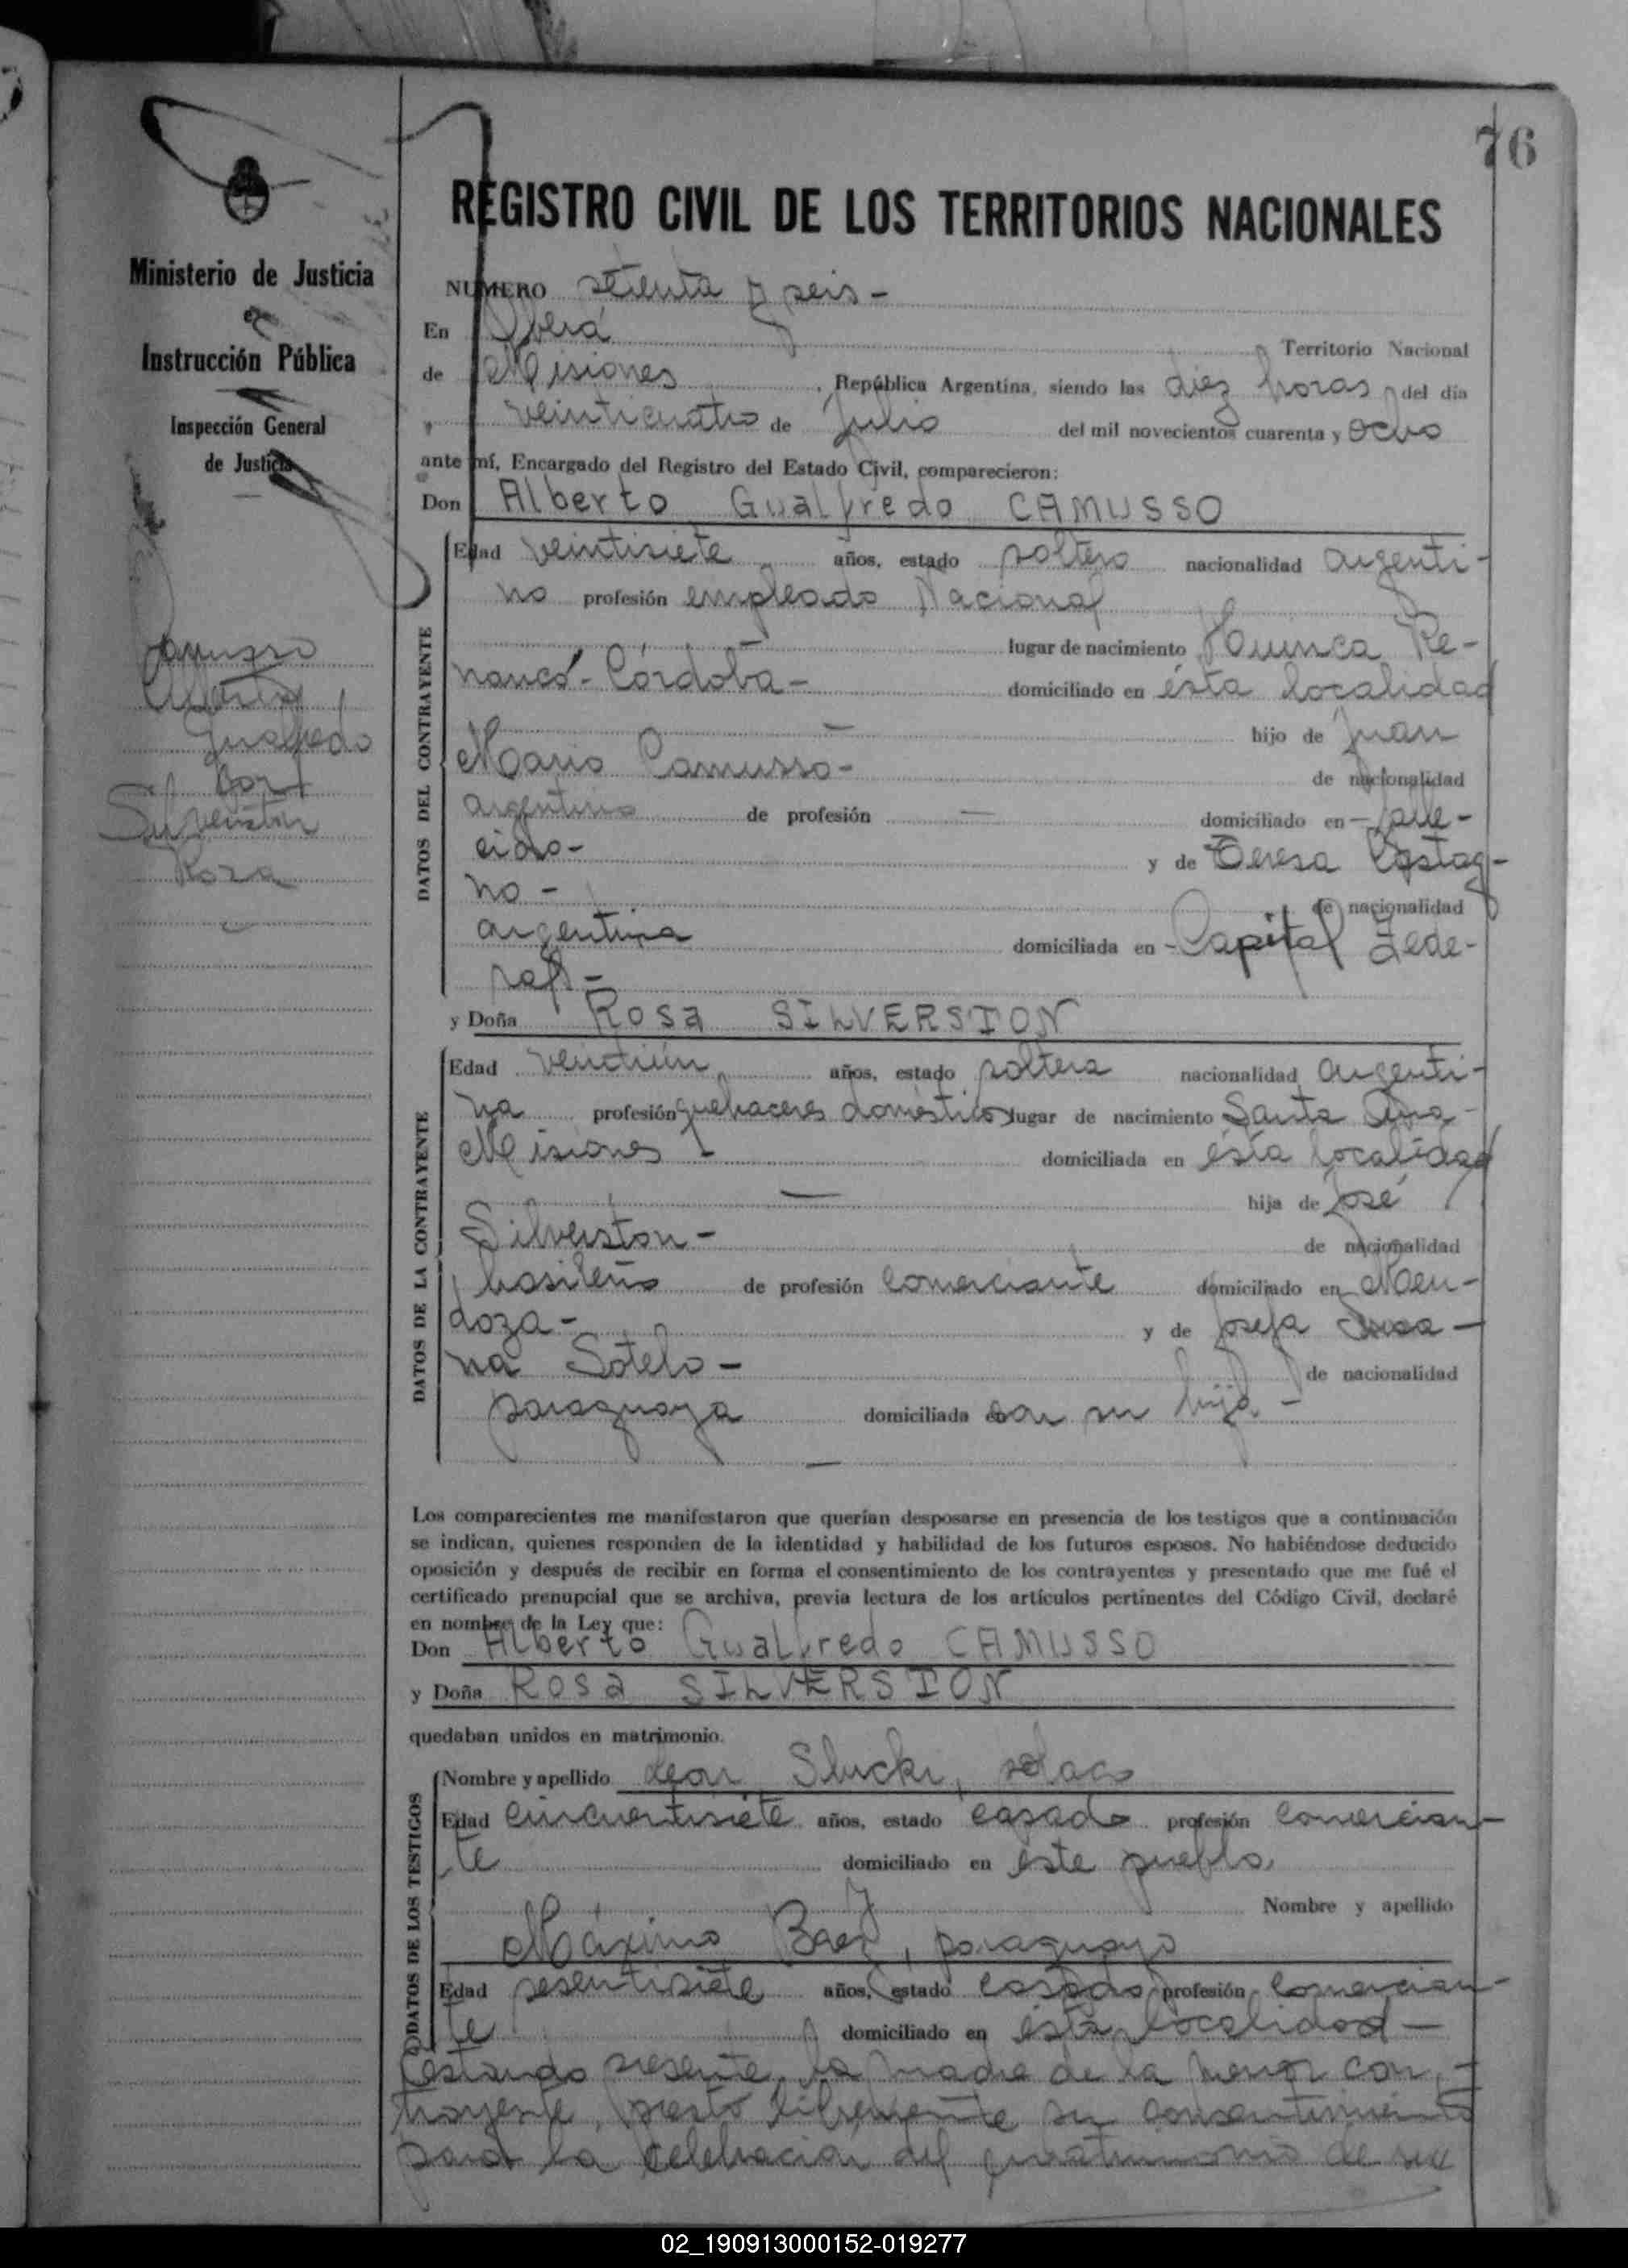 76
REGISTRO CIVIL DE LOS TERRITORIOS NACIONALES
Ministerio de Justicia
e
Instrucción Pública
Inspección General
de Justicia
NUMERO setenta y seis -
En Oberá
Territorio Nacional
de Misiones, República Argentina, siendo las diez horas del día
veinticuatro de Julio del mil novecientos cuarenta y ocho
ante mí, Encargado del Registro del Estado Civil, comparecieron:
Don Alberto Gualfredo CAMUSSO
DATOS DEL CONTRAYENTE
Edad veintisiete años, estado soltero nacionalidad argenti-
no profesión empleado Nacional
lugar de nacimiento Huinca Re-
nancó - Córdoba - domiciliado en ésta localidad
— hijo de Juan
Mario Camusso - de nacionalidad
argentino de profesión — domiciliado en - falle-
cido - y de Teresa Castag-
no - de nacionalidad
argentina domiciliada en - Capital Fede-
ral -
y Doña Rosa SILVERSTON
DATOS DE LA CONTRAYENTE
Edad veintiún años, estado soltera nacionalidad argenti-
na profesión quehaceres domésticos lugar de nacimiento Santa Ana -
Misiones - domiciliada en ésta localidad
— hija de José
Silverston - de nacionalidad
brasileño de profesión comerciante domiciliado en Men-
doza - y de Josefa
na Sotelo - de nacionalidad
paraguaya domiciliada con su hija -
—
Camusso
Alberto
Gualfredo
con
Silverston
Rosa
Los comparecientes me manifestaron que querían desposarse en presencia de los testigos que a continuación
se indican, quienes responden de la identidad y habilidad de los futuros esposos. No habiéndose deducido
oposición y después de recibir en forma el consentimiento de los contrayentes y presentado que me fué el
certificado prenupcial que se archiva, previa lectura de los artículos pertinentes del Código Civil, declaré
en nombre de la Ley que:
Don Alberto Gualfredo CAMUSSO
y Doña Rosa SILVERSTON
quedaban unidos en matrimonio.
DATOS DE LOS TESTIGOS
Nombre y apellido Leon Slucki, polaco
Edad cincuentisiete años, estado casado profesión comercian-
te domiciliado en este pueblo,
Nombre y apellido
Máximo Baez, paraguayo
Edad sesentisiete años, estado casado profesión comercian-
te domiciliado en esta localidad -
estando presente la madre de la menor con-
trayente, prestó libremente su consentimiento
para la celebración del matrimonio de su
02_190913000152-019277